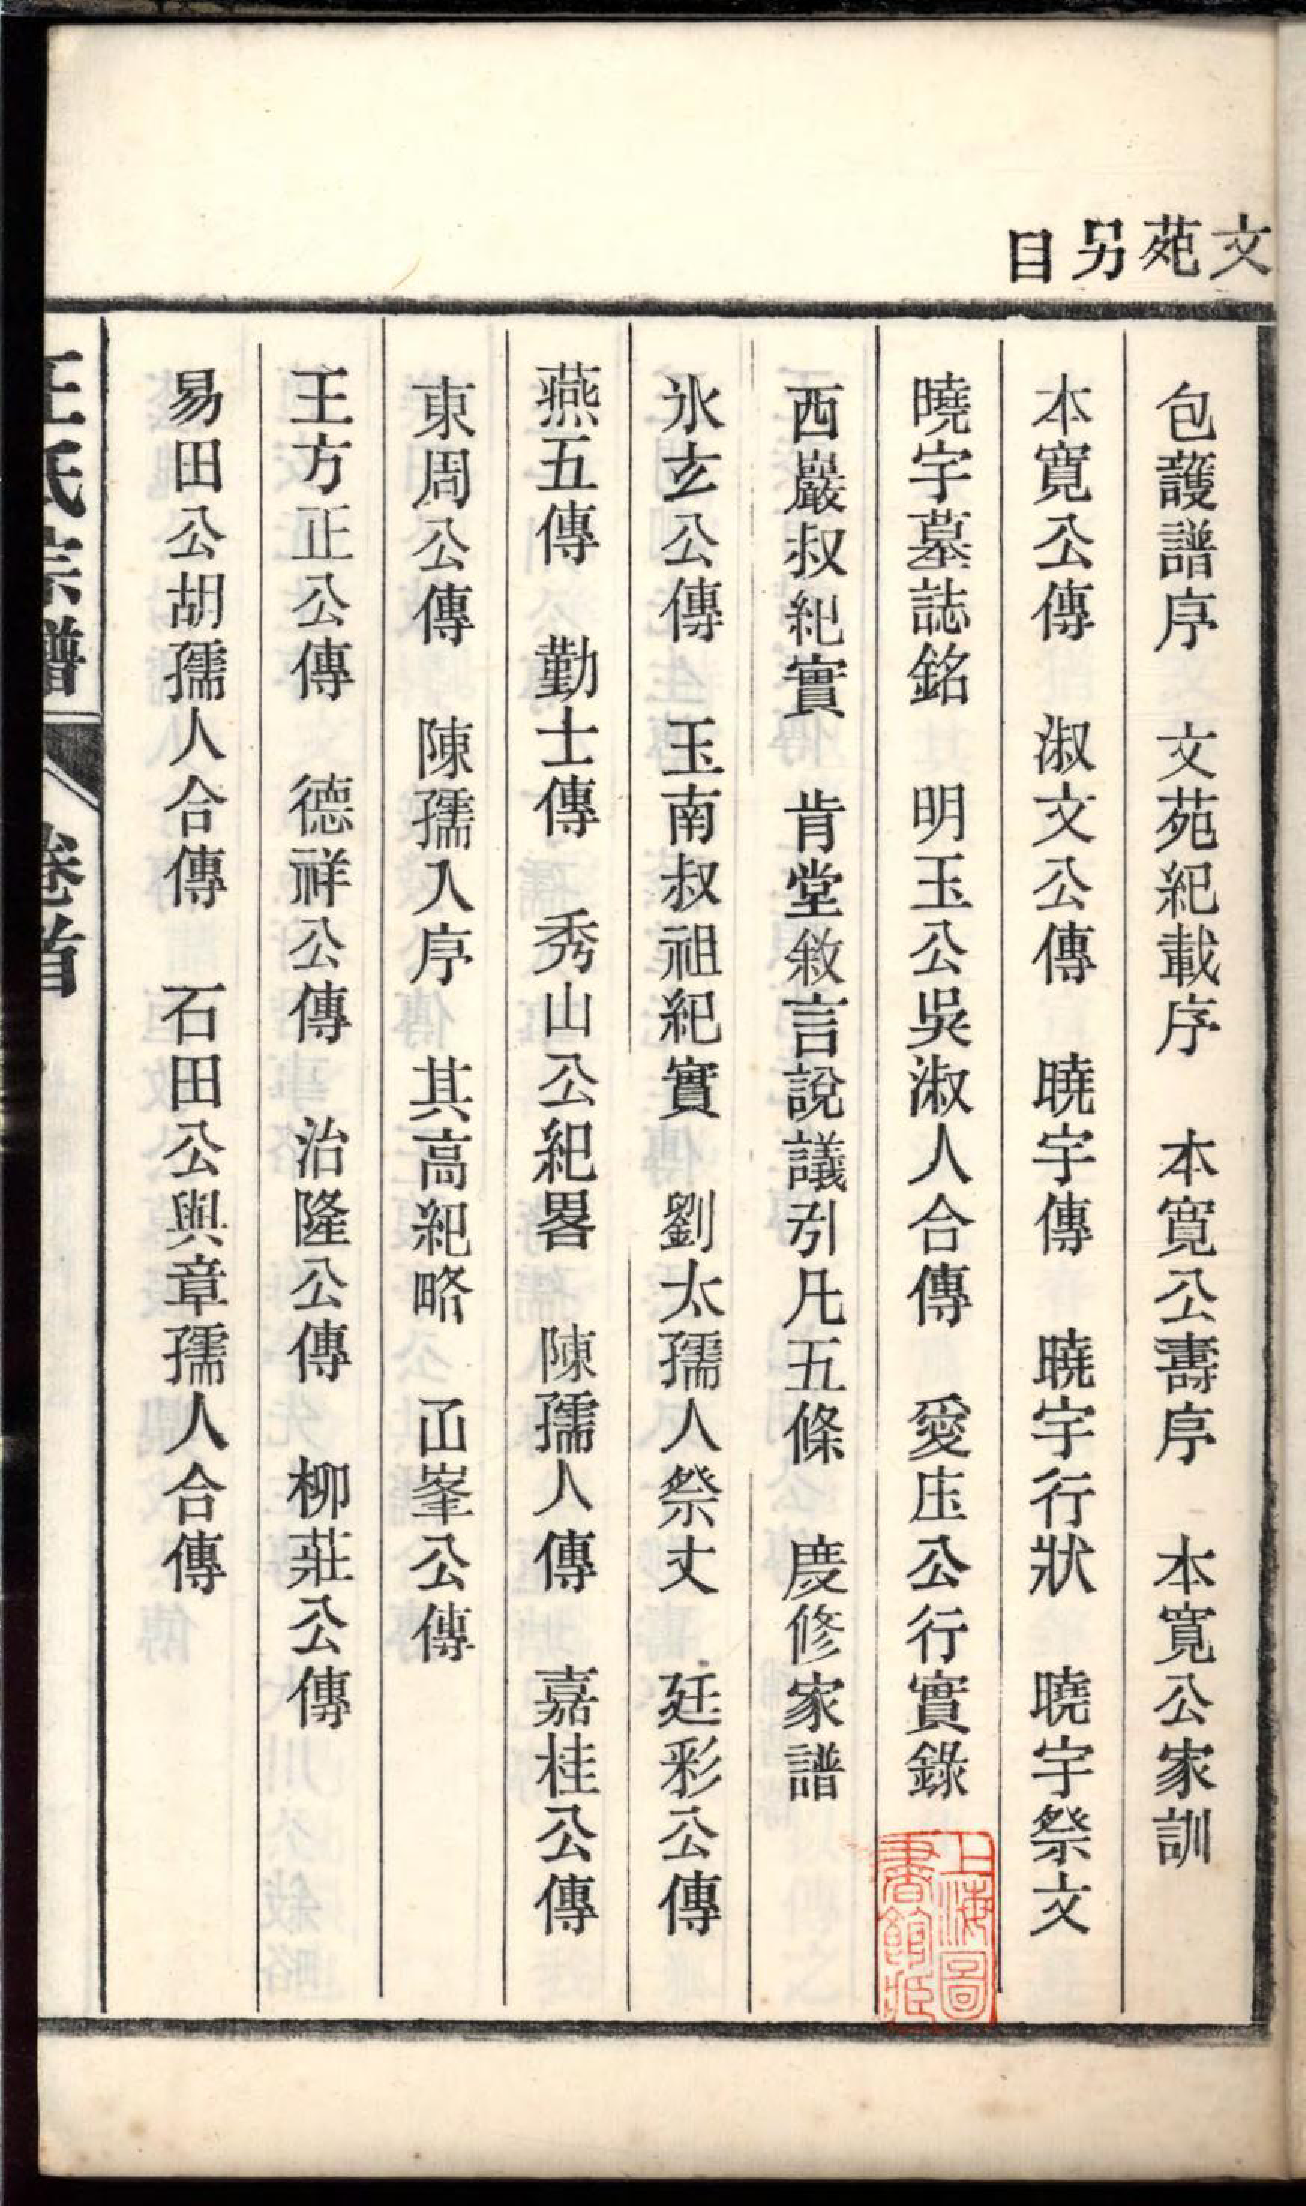 文苑另目
包護譜序　文苑紀載序　本寬公壽序　本寬公家訓
本寬公傳　淑文公傳　曉宇傳　曉宇行狀　曉宇祭文
曉宇墓誌銘　明玉公吳淑人合傳　愛庒公行實錄
西巖叔紀實　肯堂敘言說議引凡五條　慶修家譜
氷玄公傳　玉南叔祖紀實　劉太孺人祭文　廷彩公傳
燕五傳　勤士傳　秀山公紀畧　陳孺人傳　嘉桂公傳
東周公傳　陳孺人序　其高紀略　峯公傳
王方正公傳　德祥公傳　治隆公傳　柳莊公傳
易田公胡孺人合傳　石田公與章孺人合傳
王氏宗譜　卷首
上海圖書館藏